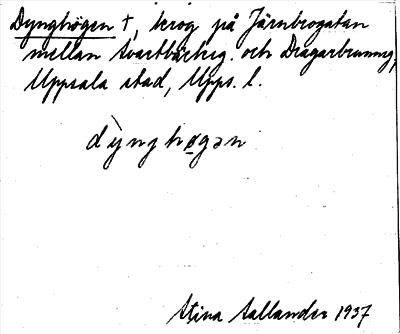 Dynghögen †, krog på Järnbrogatan
mellan Svartbäcksg. och Dragarbrunnsg,
Uppsala stad, Upps. l.
dỳnghøgən
Stina Sallander 1937